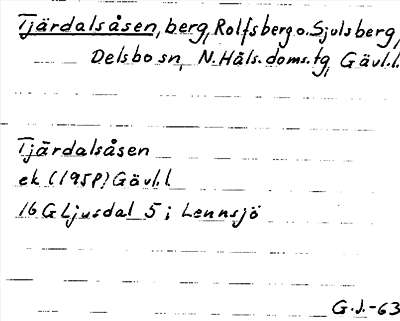 Tjärdalsåsen, berg, Rolfsberg o. Sjulsberg,
Delsbo sn, N. Häls. doms. tg, Gävl.l.
Tjärdalsåsen
ek (1958) Gävl.l
16G Ljusdal 5 i Lennsjö
G.J.-63